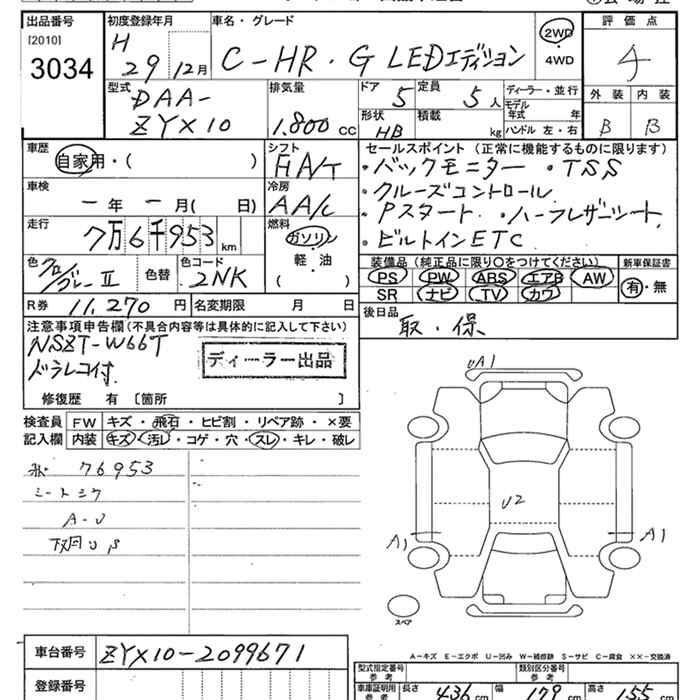 出品番号 初度登録年月 車名・グレード 評価点
[2010] 3034
H 29年 12月
C-HR・G LEDエディション
2WD・4WD
4
型式 DAA-ZYX10
排気量 1.800 CC
ドア 5 定員 5人
形状 HB 積載 kg
ディーラー・並行
モデル年式 年
ハンドル 左・右
外装 内装
B B
車歴 自家用・( )
シフト FA/T
セールスポイント(正常に機能するものに限ります)
・バックモニター ・TSS
・クルーズコントロール
・Pスタート ・ハーフレザーシート
・ビルトインETC
車検 ー年ー月( 日)
冷房 AA/C
走行 7万6千953km
燃料 ガソリン・軽・油 ( )
色 クロ/グレーII 色替 色コード 2NK
装備品(純正品に限り○をつけてください) 新車保証書
PS PW ABS エアB AW
SR ナビ TV カワ
有・無
R券 11,270円 名変期限 月 日
後日品 取・保
注意事項申告欄(不具合内容等は具体的に記入して下さい)
NSZT-W66T
ドラレコ付
ディーラー出品
修復歴 有〔箇所 〕
検査員記入欄
FW キズ・飛石・ヒビ割・リペア跡・×要
内装 キズ・汚レ・コゲ・穴・スレ・キレ・破レ
76953
シートシワ
A-U
UA1
U2
A1 A1
スペア
A-キズ E-エクボ U-凹み W-補修跡 S-サビ C-腐食 ××-交換済
車台番号 ZYX10-2099671
登録番号
型式指定番号 参考 類別区分番号 参考
車庫証明用 参考 長さ 436cm 幅 179cm 高さ 155cm